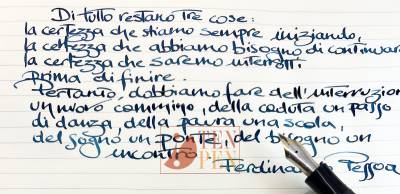 Di tutto restano tre cose:
la certezza che stiamo sempre iniziando,
la certezza che abbiamo bisogno di continuare
la certezza che saremo interrotti.
prima di finire.
Pertanto, dobbiamo fare dell'interruzion
un nuovo cammino, della caduta un passo
di danza, della paura una scala,
del sogno un ponte, del bisogno un
incontro
Ferdina Pessoa
TEN
PEN